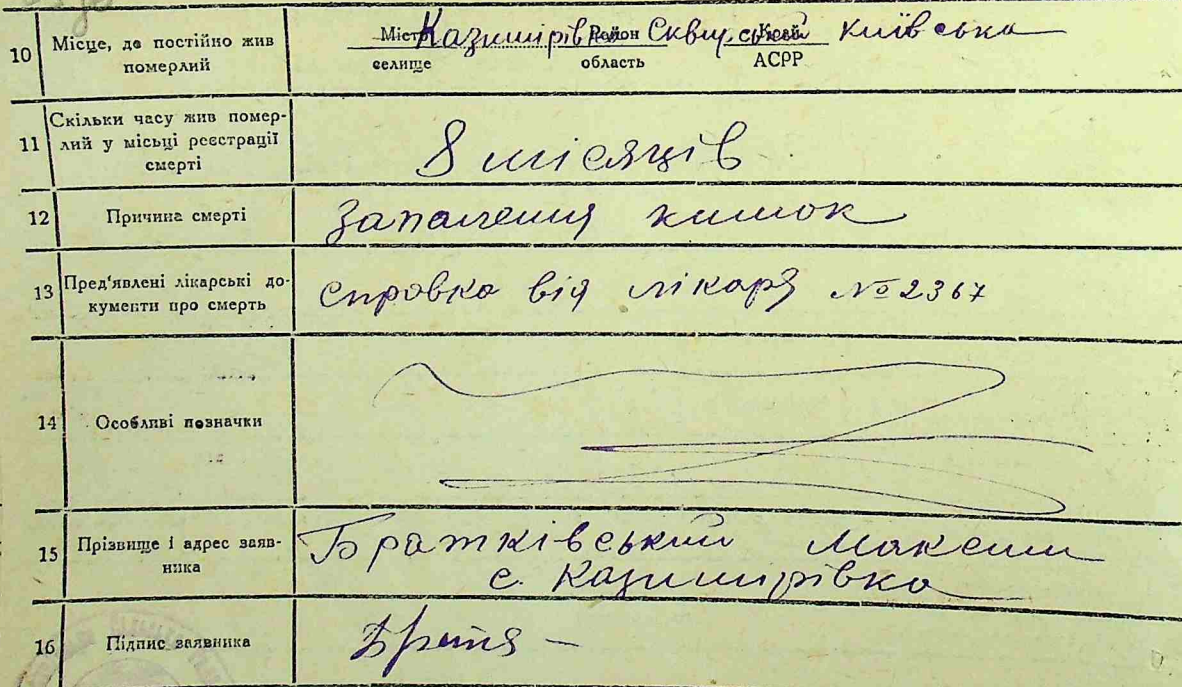 10 Місце, де постійно жив померлий
Казимирівка Сквирський Київська
Місто Район Край
селище область АСРР
11 Скільки часу жив помер-
лий у місьці реєстрації
смерті
8 місяців
12 Причина смерті
Запалення кишок
13 Пред'явлені лікарські до-
кументи про смерть
справка від лікаря № 2367
14 Особливі позначки
15 Прізвище і адрес заяв-
ника
Братківський Максим
с. Казимирівка
16 Підпис заявника